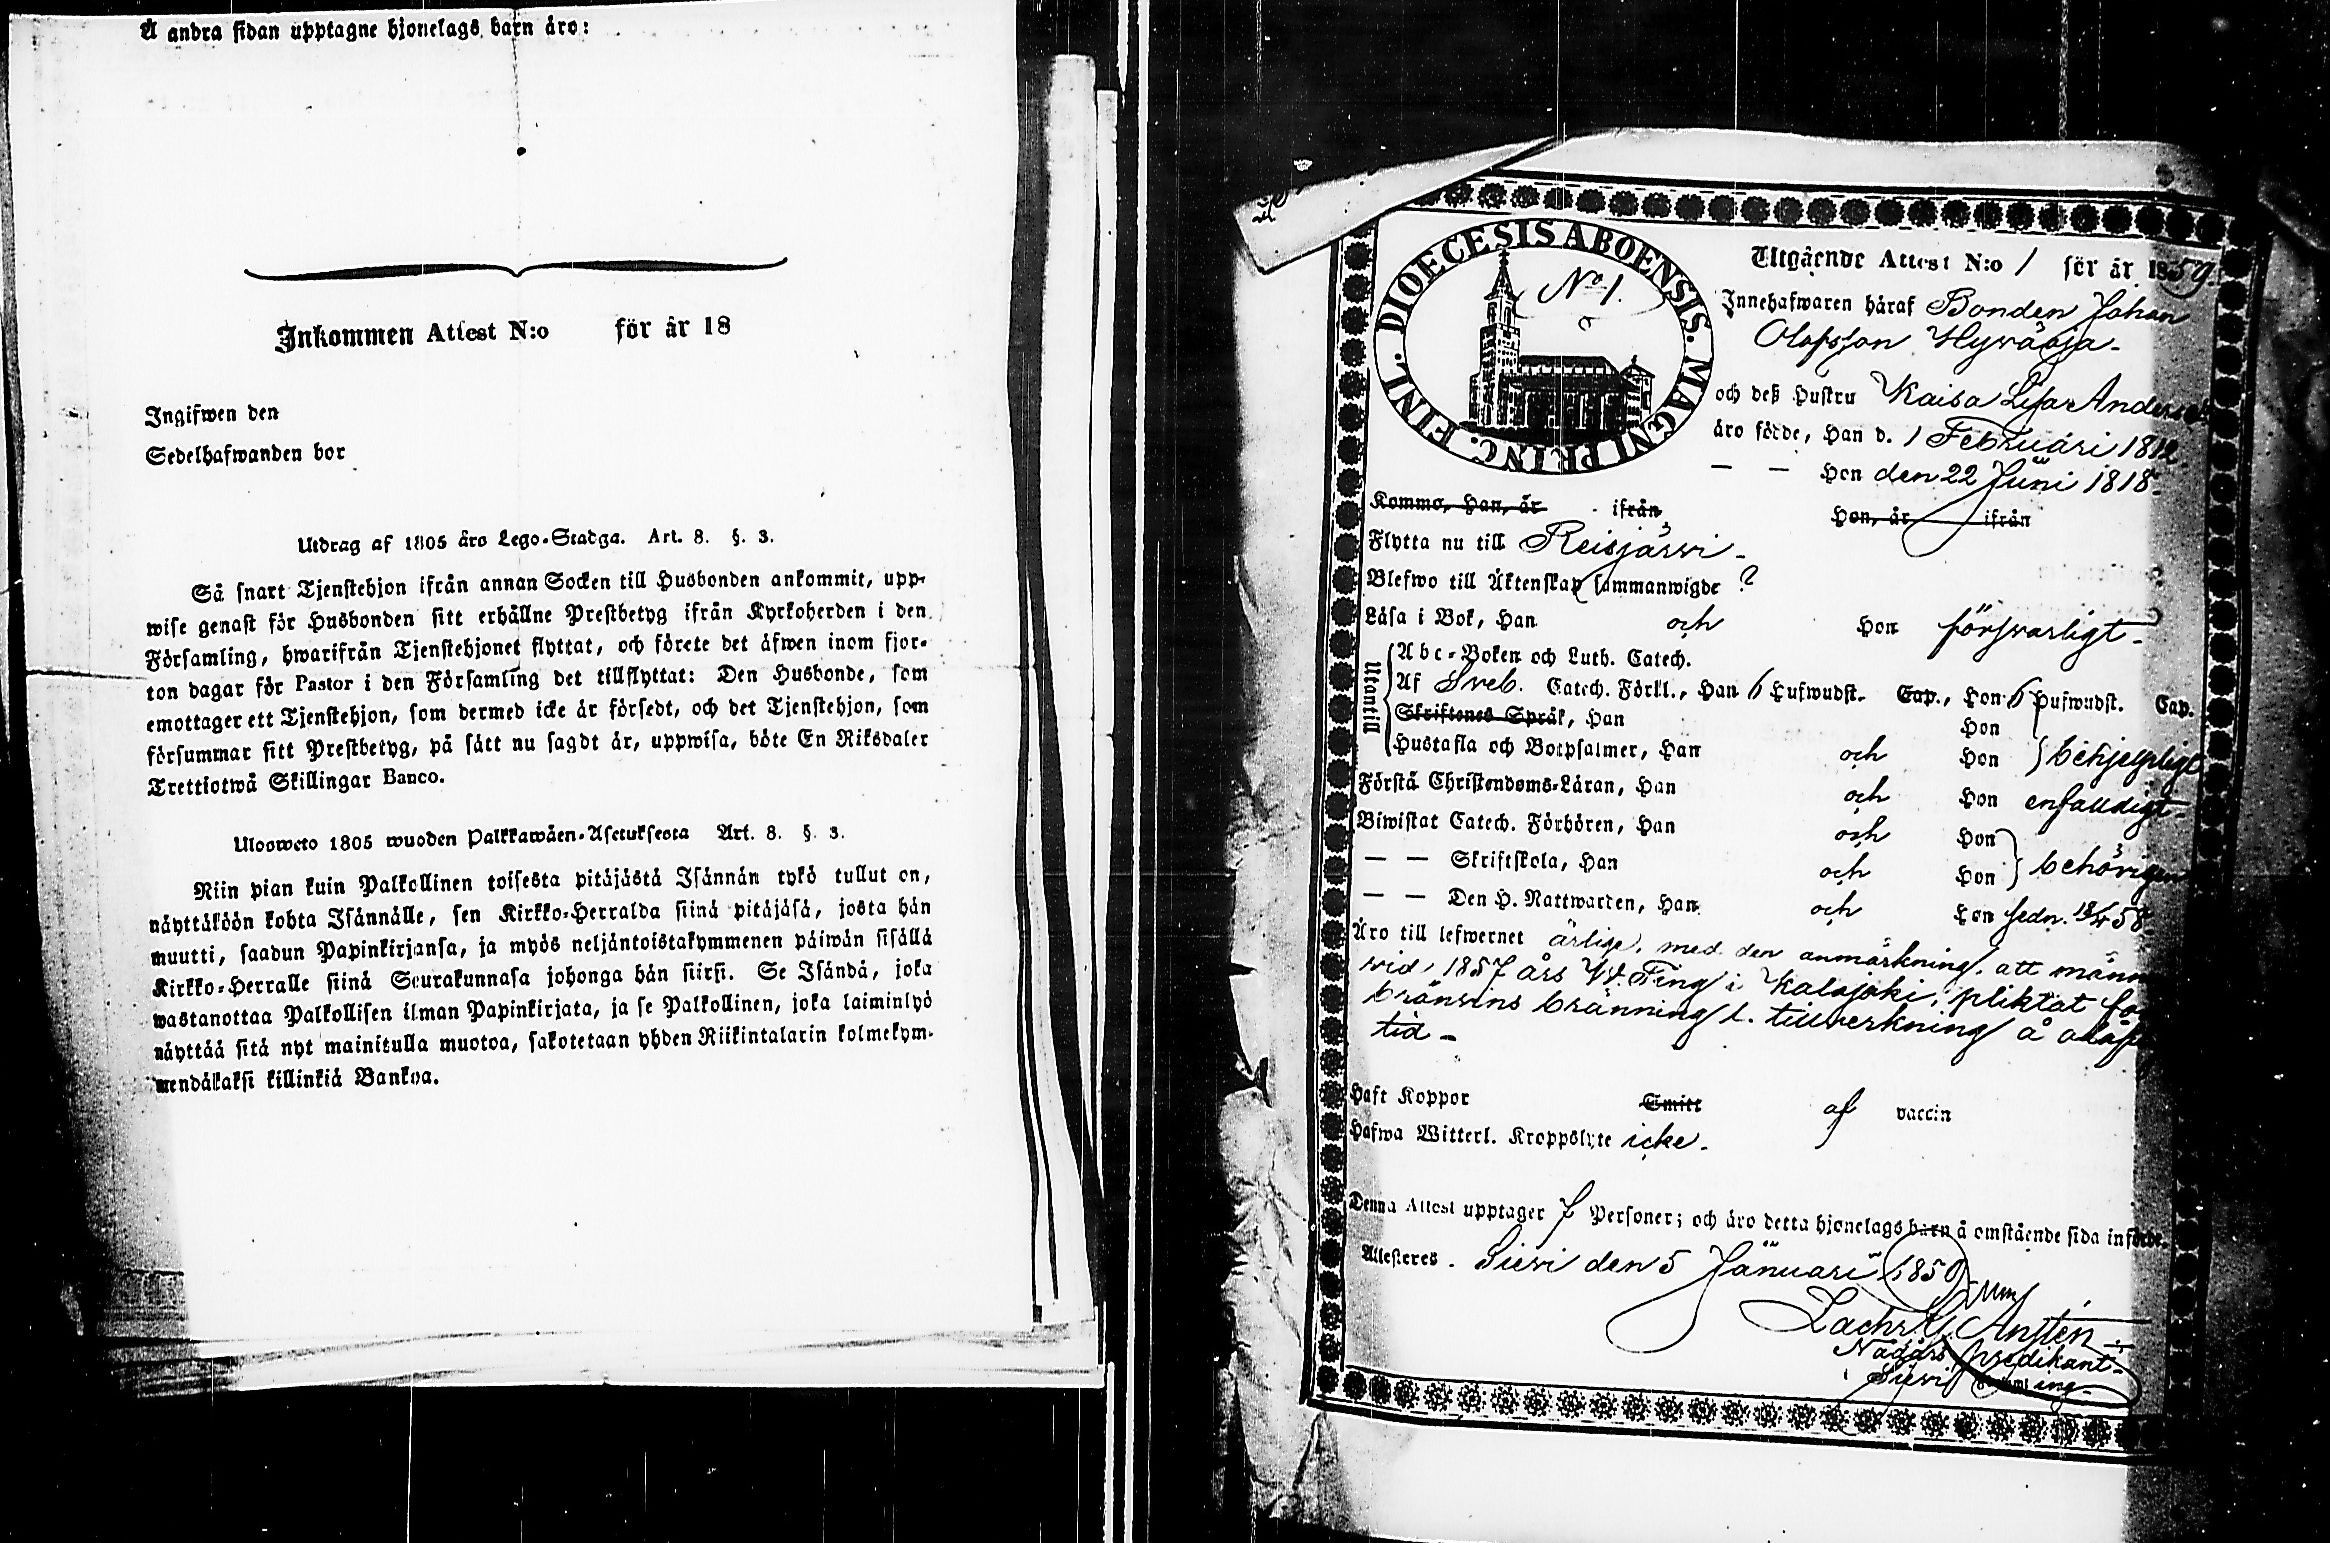 Å andra sidan upptagne hjonelags barn äro:
Inkommen Attest N:o för år 18
Ingifwen den
Sedelhafwanden bor
Utdrag af 1805 års Lego-Stadga. Art. 8. §. 3.
Så snart Tjenstehjon ifrån annan Socken till Husbonden ankommit, upp-
wise genast för Husbonden sitt erhållne Prestbetyg ifrån Kyrkoherden i den
Församling, hwarifrån Tjenstehjonet flyttat, och förete det äfwen inom fjor-
ton dagar för Pastor i den Församling det tillflyttat: Den Husbonde, som
emottager ett Tjenstehjon, som dermed icke är försedt, och det Tjenstehjon, som
försummar sitt Prestbetyg, på sätt nu sagdt är, uppwisa, böte En Riksdaler
Trettiotwå Skillingar Banco.
Ulosweto 1805 wuoden Palkkawäen-Asetuksesta Art. 8. §. 3.
Niin pian kuin Palkollinen toisesta pitäjästä Isännän tykö tullut on,
näyttäköön kohta Isännälle, sen Kirkko-Herralda siinä pitäjäsä, josta hän
muutti, saadun Papinkirjansa, ja myös neljäntoistakymmenen päiwän sisällä
Kirkko-Herralle siinä Seurakunnasa johonga hän siirsi. Se Isändä, joka
wastanottaa Palkollisen ilman Papinkirjata, ja se Palkollinen, joka laiminlyö
näyttää sitä nyt mainitulla muotoa, sakotetaan yhden Riikintalarin kolmekym-
mendäkaksi killinkiä Bankoa.
FINL. DIOECESIS ABOENSIS. MAGNI PRINC.
No 1.
Utgående Attest N:o 1 för år 1859.
Innehafwaren häraf Bonden Johan
Olofsson Hywäoja-
och deß Hustru Kaisa Lisa Anders
äro födde, Han d. 1 Februari 1812.
— — Hon den 22 Juni 1818.
Kommo, Han, år ifrån Hon, år ifrån
Flytta nu till Reisjärwi-
Blefwo till Äktenskap sammanwigde ?
Läsa i Bok, Han och Hon förswarligt-
Utantill
Abc-Boken och Luth. Catech.
Af Sveb. Catech. Förkl., Han 6 Hufwudst. Cap., Hon 6 Hufwudst. Cap.
Skriftenes Språk, Han Hon
Hustafla och Botpsalmer, Han och Hon behjelpligt
Förstå Christendoms-Läran, Han och Hon enfaldigt-
Biwistat Catech. Förhören, Han och Hon
— — Skriftskola, Han och Hon behörigen
— — Den H. Nattwarden, Han och Hon sedn. 58.
Äro till lefwernet ärlige, med den anmärkning, att männ
wid 1857 års Ting i Kalajoki, pliktat för
bränwins bränning l. tillwerkning å
tid-
Haft Koppor Smitt af vaccin
Hafwa Witterl. Kroppslyte icke-
Denna Attest upptager 7 Personer; och äro detta hjonelags barn å omstående sida införde.
Attesteres. Siewi den 5 Januari 1859
Zachr. Anstén
Nådårs Predikant.
Siewi